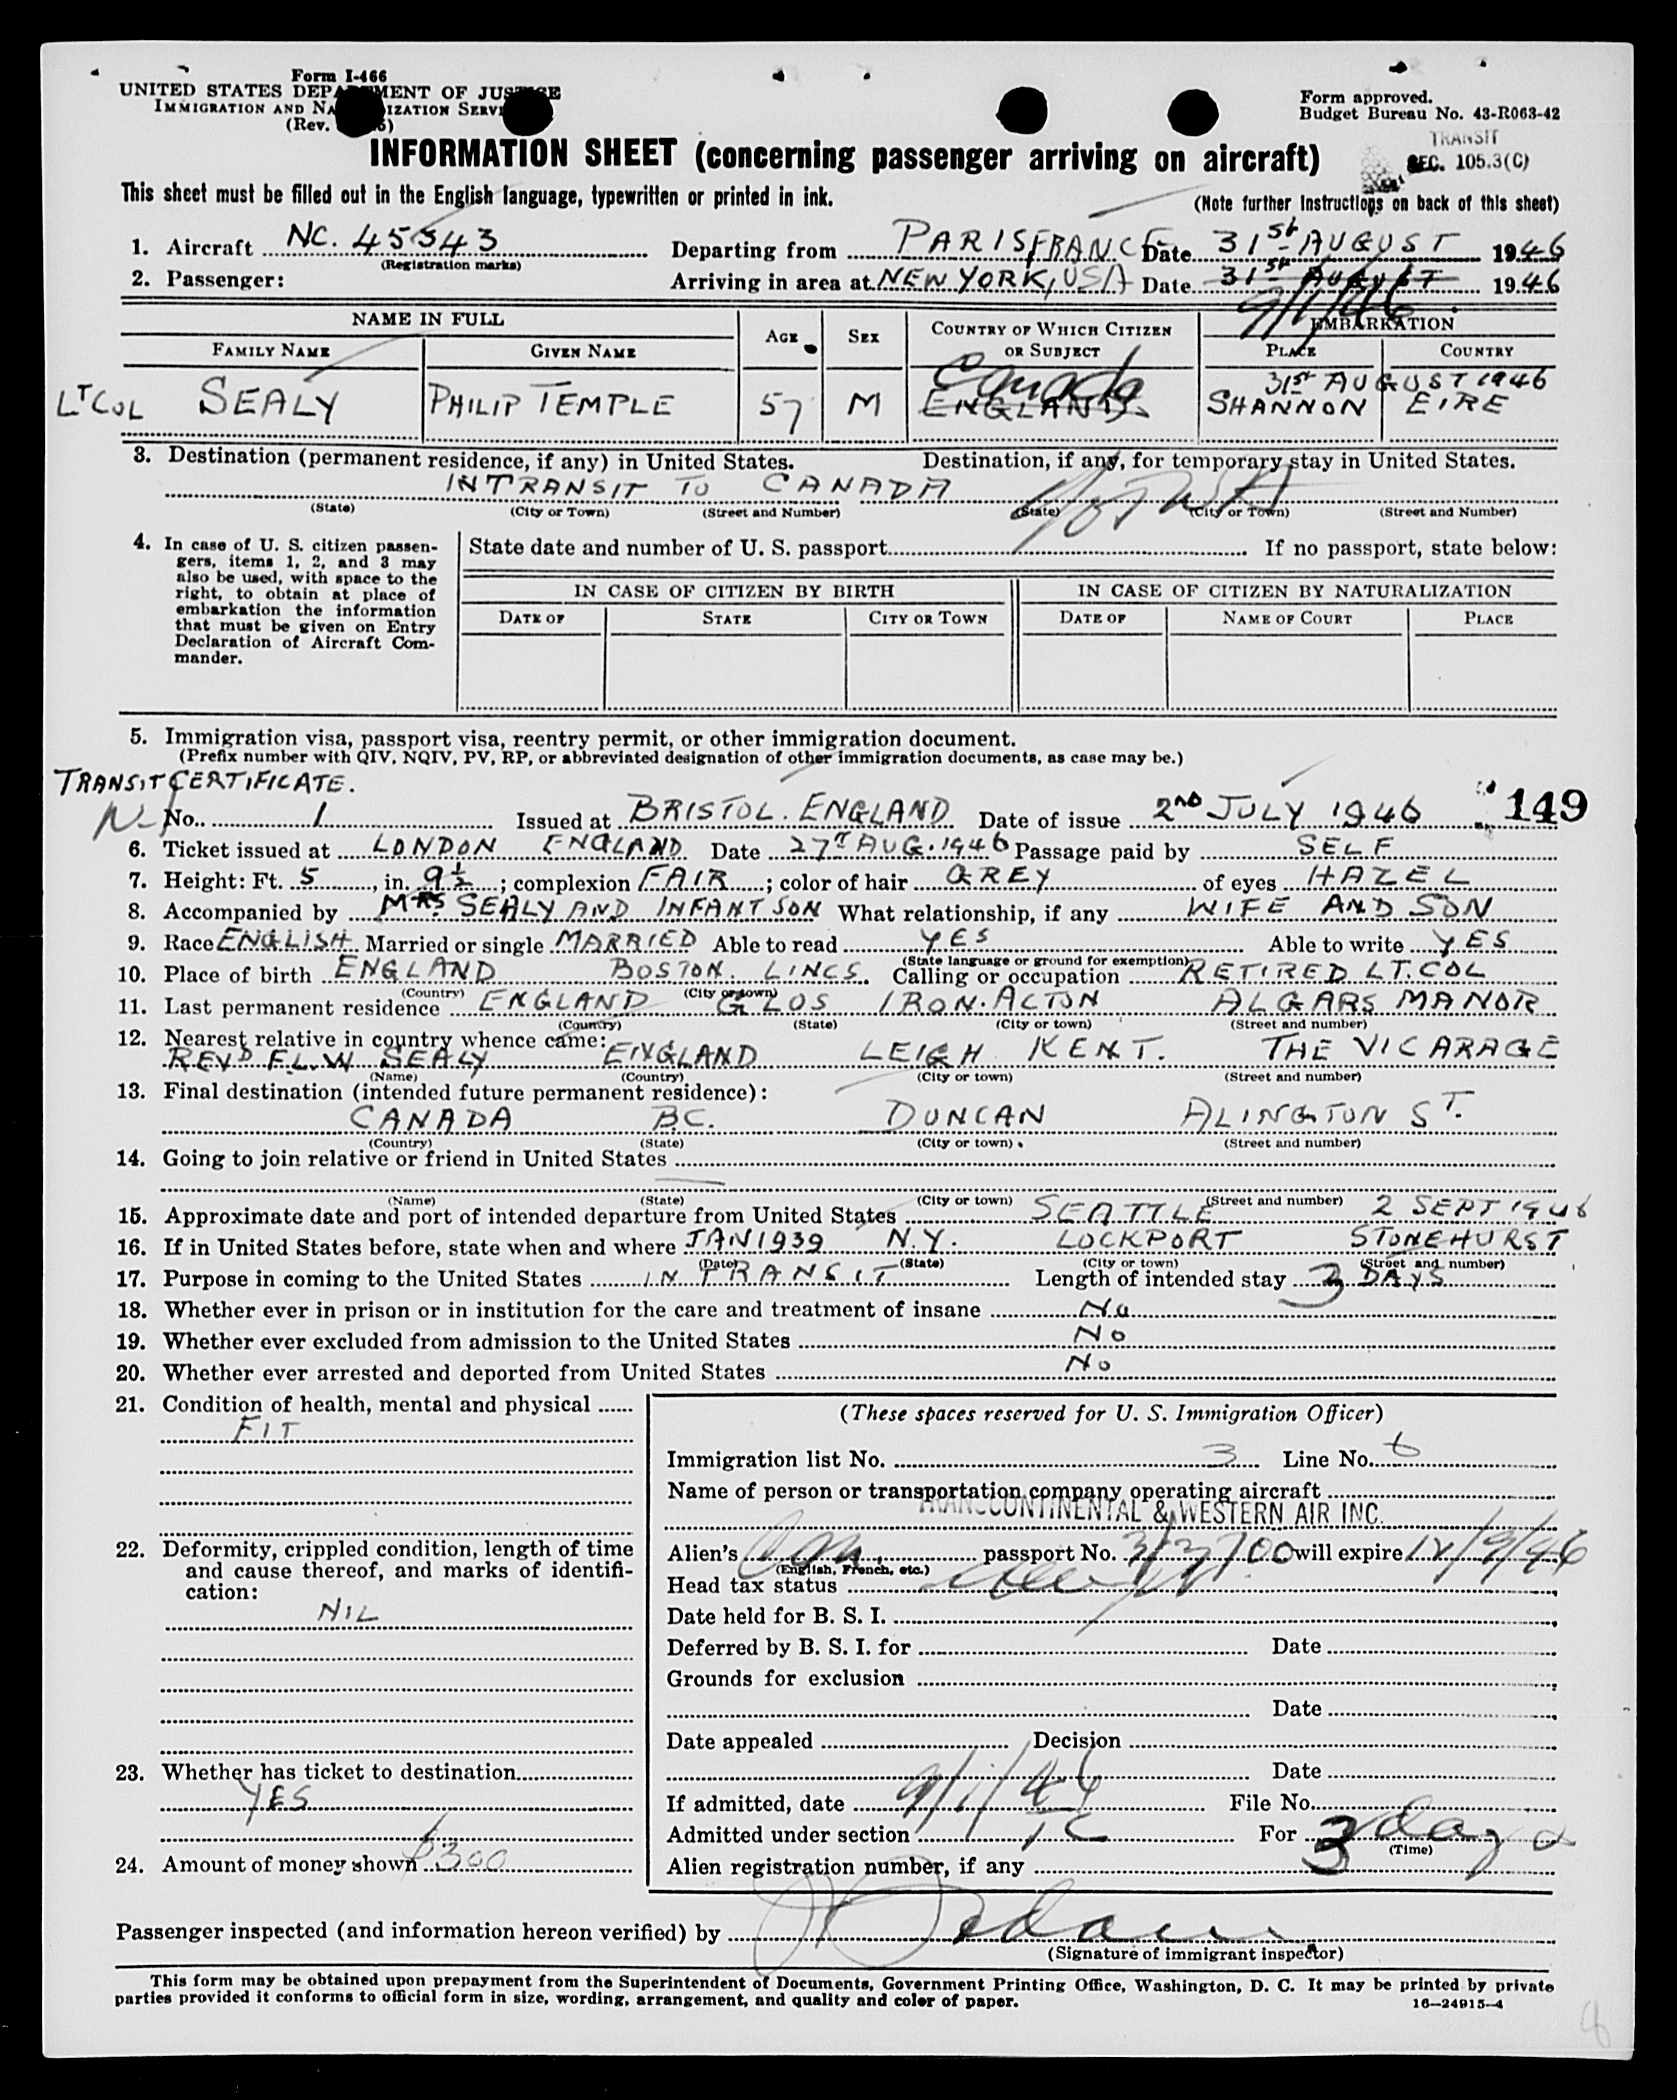 Form I-466
UNITED STATES DEPARTMENT OF JUSTICE
IMMIGRATION AND NATURALIZATION SERVICE
(Rev.
Form approved.
Budget Bureau No. 43-R063-42
TRANSIT
SEC. 105.3(C)
INFORMATION SHEET (concerning passenger arriving on aircraft)
This sheet must be filled out in the English language, typewritten or printed in ink.
(Note further instructions on back of this sheet)
1. Aircraft NC. 45343 Departing from PARIS FRANCE Date 31st AUGUST 1946
(Registration marks)
2. Passenger: Arriving in area at NEW YORK, USA Date 31st AUGUST 1946
9/1/46
NAME IN FULL AGE SEX COUNTRY OF WHICH CITIZEN OR SUBJECT EMBARKATION
FAMILY NAME GIVEN NAME PLACE COUNTRY
Canada 31st AUGUST 1946
LT COL SEALY PHILIP TEMPLE 57 M ENGLAND SHANNON EIRE
3. Destination (permanent residence, if any) in United States. Destination, if any, for temporary stay in United States.
INTRANSIT TO CANADA
(State) (City or Town) (Street and Number) (State) (City or Town) (Street and Number)
4. In case of U. S. citizen passengers, items 1, 2, and 3 may also be used, with space to the right, to obtain at place of embarkation the information that must be given on Entry Declaration of Aircraft Commander.
State date and number of U. S. passport If no passport, state below:
IN CASE OF CITIZEN BY BIRTH IN CASE OF CITIZEN BY NATURALIZATION
DATE OF STATE CITY OR TOWN DATE OF NAME OF COURT PLACE
5. Immigration visa, passport visa, reentry permit, or other immigration document.
(Prefix number with QIV, NQIV, PV, RP, or abbreviated designation of other immigration documents, as case may be.)
TRANSIT CERTIFICATE.
No. 1 Issued at BRISTOL. ENGLAND Date of issue 2ND JULY 1946 149
6. Ticket issued at LONDON ENGLAND Date 27T AUG. 1946 Passage paid by SELF
7. Height: Ft. 5, in. 9½; complexion FAIR; color of hair GREY of eyes HAZEL
8. Accompanied by MRS. SEALY AND INFANT SON What relationship, if any WIFE AND SON
9. Race ENGLISH Married or single MARRIED Able to read YES Able to write YES
(State language or ground for exemption)
10. Place of birth ENGLAND BOSTON. LINCS Calling or occupation RETIRED LT. COL
(Country) (City or town)
11. Last permanent residence ENGLAND GLOS IRON. ACTON ALGARS MANOR
(Country) (State) (City or town) (Street and number)
12. Nearest relative in country whence came:
REVD F.L.W SEALY ENGLAND LEIGH KENT. THE VICARAGE
(Name) (Country) (City or town) (Street and number)
13. Final destination (intended future permanent residence):
CANADA B.C. DUNCAN ALINGTON ST.
(Country) (State) (City or town) (Street and number)
14. Going to join relative or friend in United States
(Name) (State) (City or town) (Street and number)
15. Approximate date and port of intended departure from United States SEATTLE 2 SEPT 1946
16. If in United States before, state when and where JAN 1939 N.Y. LOCKPORT STONEHURST
(Date) (State) (City or town) (Street and number)
17. Purpose in coming to the United States IN TRANSIT Length of intended stay 3 DAYS
18. Whether ever in prison or in institution for the care and treatment of insane No
19. Whether ever excluded from admission to the United States No
20. Whether ever arrested and deported from United States No
21. Condition of health, mental and physical
FIT
22. Deformity, crippled condition, length of time and cause thereof, and marks of identification:
NIL
23. Whether has ticket to destination
YES
24. Amount of money shown $300
(These spaces reserved for U. S. Immigration Officer)
Immigration list No. 3 Line No. 6
Name of person or transportation company operating aircraft
TRANSCONTINENTAL & WESTERN AIR INC.
Alien's Can. passport No. will expire 12/9/46
(English, French, etc.)
Head tax status
Date held for B. S. I.
Deferred by B. S. I. for Date
Grounds for exclusion
Date
Date appealed Decision
Date
If admitted, date 9/1/46 File No.
Admitted under section TC For 3 days
(Time)
Alien registration number, if any
Passenger inspected (and information hereon verified) by
(Signature of immigrant inspector)
This form may be obtained upon prepayment from the Superintendent of Documents, Government Printing Office, Washington, D. C. It may be printed by private
parties provided it conforms to official form in size, wording, arrangement, and quality and color of paper.
16—24915-4
8